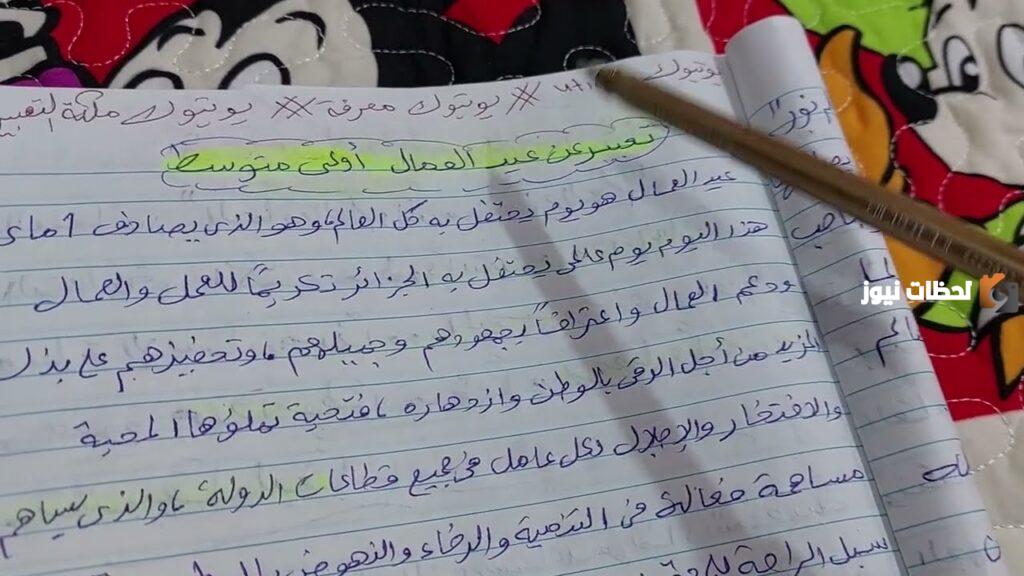 يوتيوك معرفة # يوتيوك ملكة التعبير
تعبير عن عيد العمال أولى متوسط
عيد العمال هو يوم تحتفل به كل العالم، وهو الذي يصادف 1 ماي
هذا اليوم يوم عالمي تحتفل به الجزائر تكريمًا للعمل والعمال
ودعم العمال واعترافًا بجهودهم وجميلهم، وتحفيزهم على بذل
المزيد من أجل الرقي بالوطن وازدهاره، فتحية تملؤها المحبة
والافتخار والإجلال لكل عامل في جميع قطاعات الدولة، والذي يساهم
مساهمة فعالة في التنمية والرخاء والنهوض
سبل الراحة
لحظات نيوز